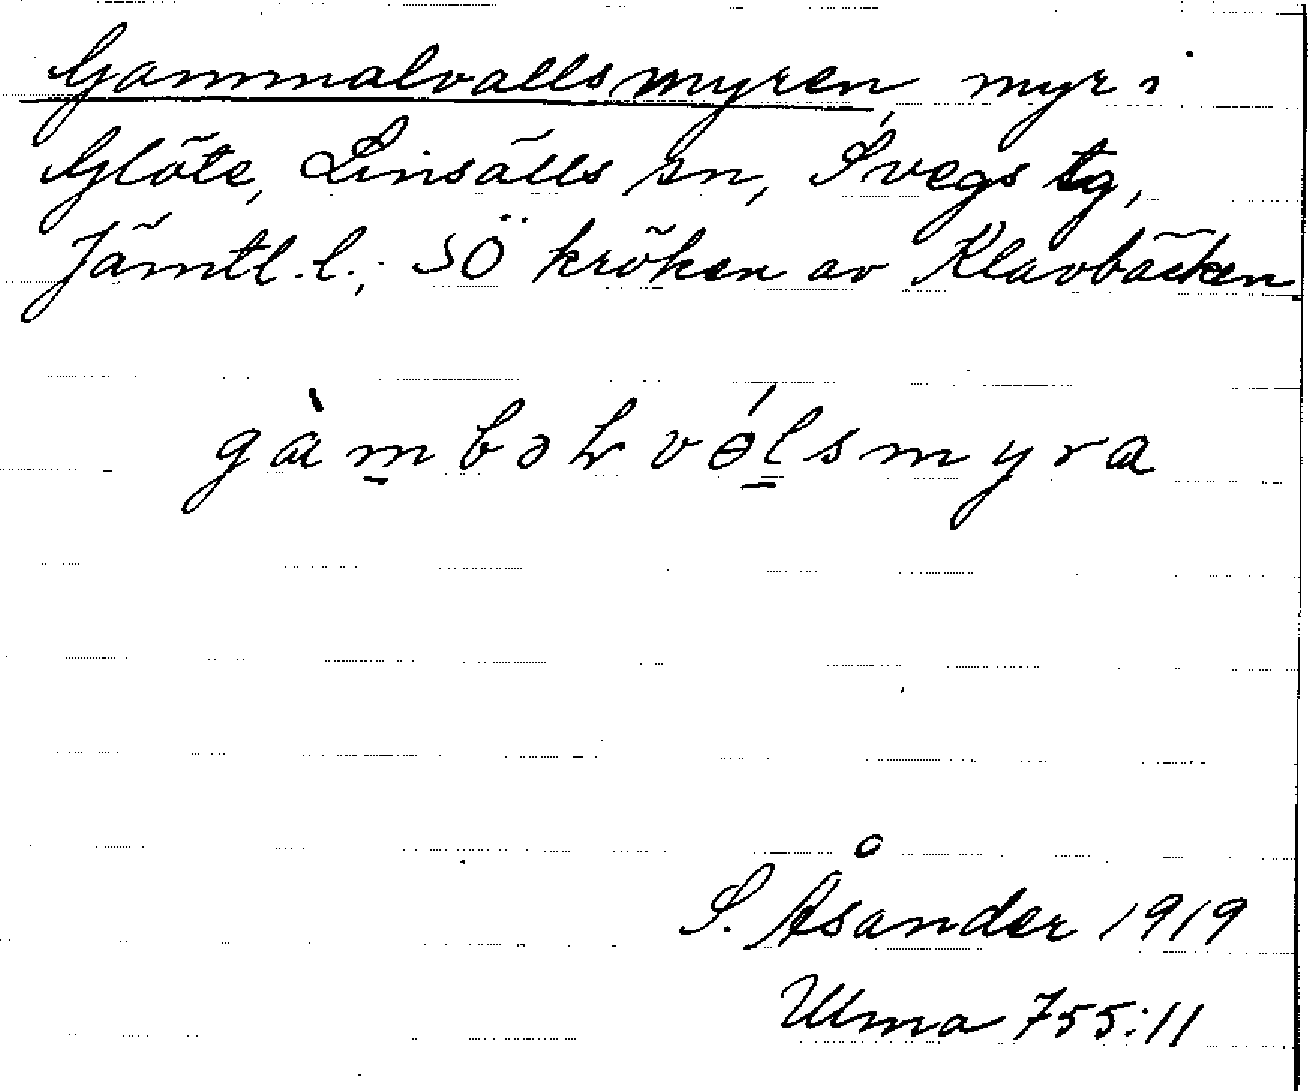 Gammalvallsmyren, myr i
Glöte, Linsälls sn, Svegs tg,
Jämtl. l.; SÖ kröken av Klavbäcken.
S. Åsander 1919
Ulma 755:11